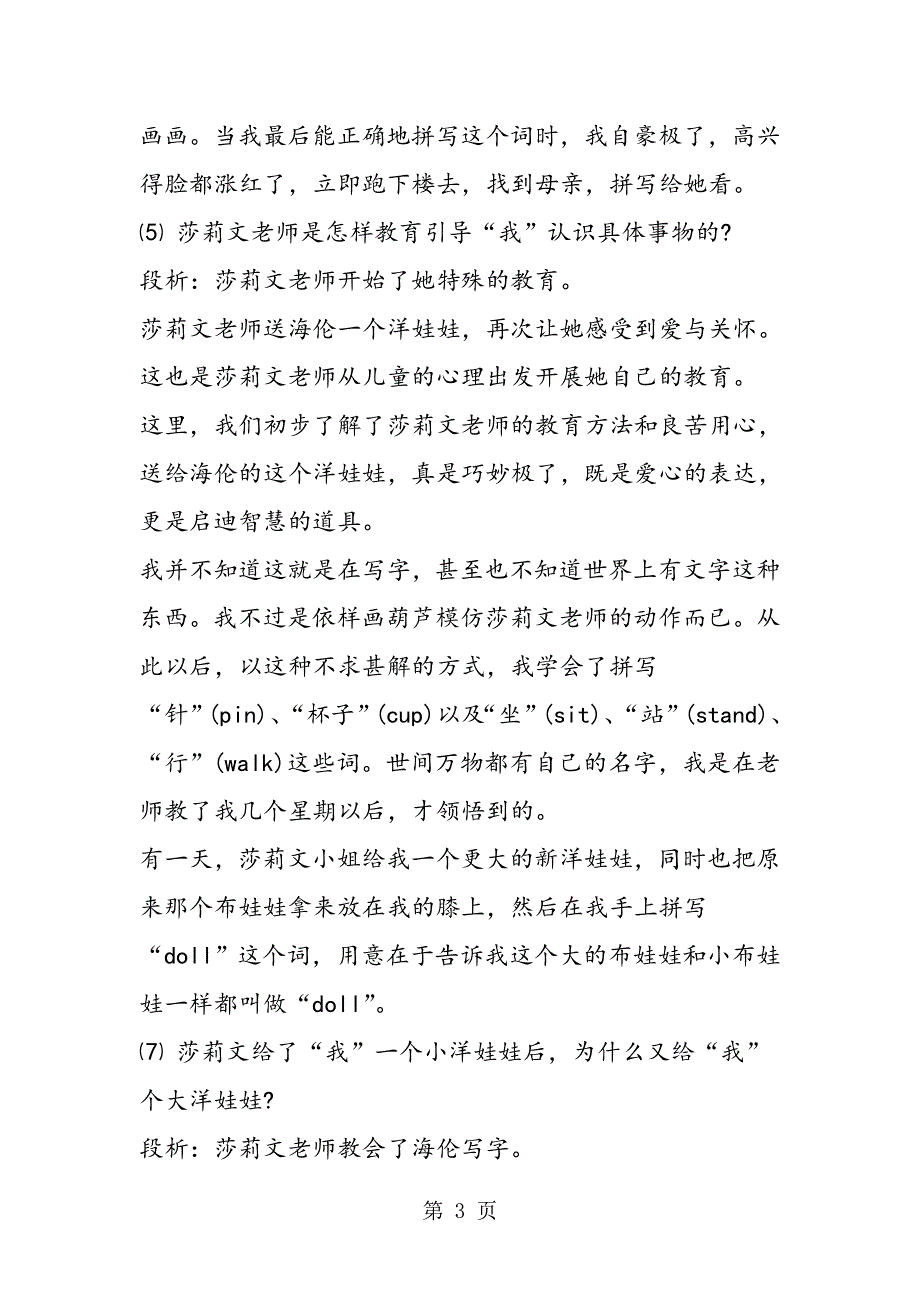 画画。当我最后能正确地拼写这个词时，我自豪极了，高兴
得脸都涨红了，立即跑下楼去，找到母亲，拼写给她看。
⑸ 莎莉文老师是怎样教育引导“我”认识具体事物的?
段析：莎莉文老师开始了她特殊的教育。
莎莉文老师送海伦一个洋娃娃，再次让她感受到爱与关怀。
这也是莎莉文老师从儿童的心理出发开展她自己的教育。
这里，我们初步了解了莎莉文老师的教育方法和良苦用心，
送给海伦的这个洋娃娃，真是巧妙极了，既是爱心的表达，
更是启迪智慧的道具。
我并不知道这就是在写字，甚至也不知道世界上有文字这种
东西。我不过是依样画葫芦模仿莎莉文老师的动作而已。从
此以后，以这种不求甚解的方式，我学会了拼写
“针”(pin)、“杯子”(cup)以及“坐”(sit)、“站”(stand)、
“行”(walk)这些词。世间万物都有自己的名字，我是在老
师教了我几个星期以后，才领悟到的。
有一天，莎莉文小姐给我一个更大的新洋娃娃，同时也把原
来那个布娃娃拿来放在我的膝上，然后在我手上拼写
“doll”这个词，用意在于告诉我这个大的布娃娃和小布娃
娃一样都叫做“doll”。
⑺ 莎莉文给了“我”一个小洋娃娃后，为什么又给“我”
个大洋娃娃?
段析：莎莉文老师教会了海伦写字。
第 3 页